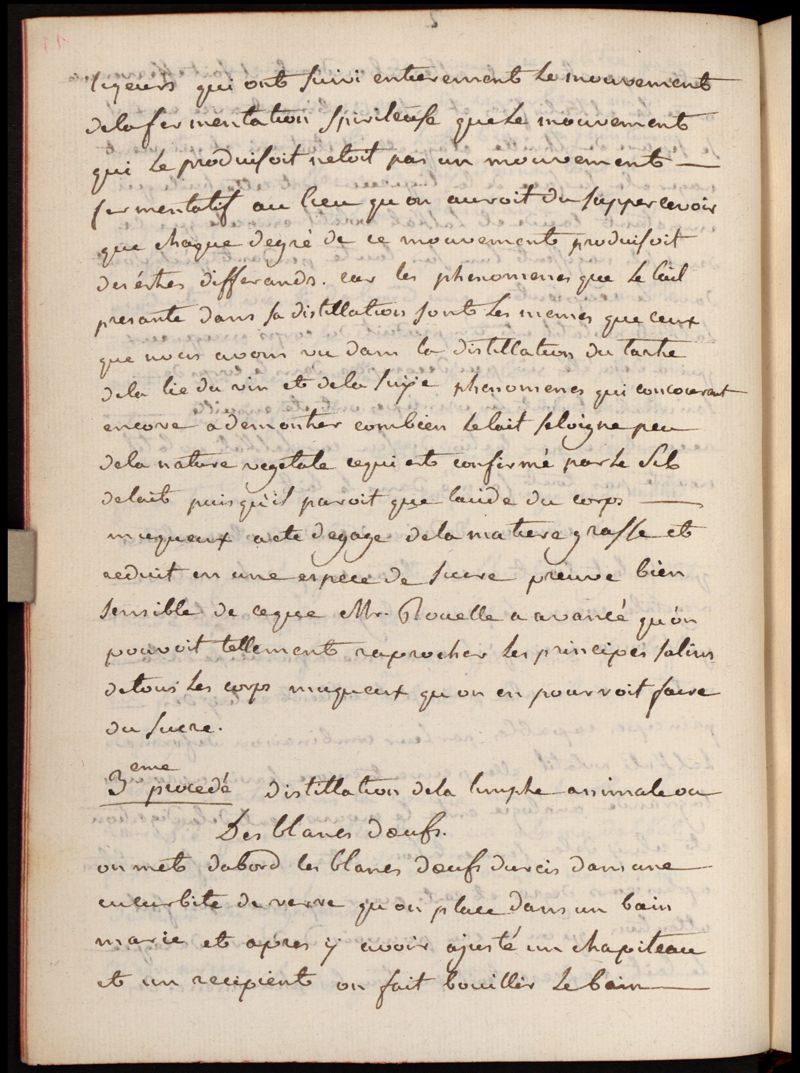 2
legeurs qui ont suivi entierement le mouvement
dela fermentation spiriteuse que le mouvement
qui le produisoit netoit pas un mouvement —
fermentatif au lieu qu on auroit du sappercevoir
que chaque degré de ce mouvement produisoit
des éstres differands. car les phenomenes que le lait
presante dans sa distillation sont les memes que ceux
que nous avons vu dans la distillation du tartre
dela lie du vin et dela suye phenomenes qui concourent
encore a demontrer combien le lait seloigne peu
dela nature vegetale cequi est confirmé par le sel
delait puisqu'il paroit que lacide du corps —
muqueux a ete degagé dela matiere grasse et
reduit en une espece de sucre preuve bien
sensible de ceque Mr. Rouelle a avancé qu'on
pouvoit tellement raprocher les principes salins
detous les corps muqueux qu on en pourroit faire
du sucre.
3eme procedé distillation dela limphe animale ou
Des blancs dœufs.
on met dabord les blancs dœufs durcis dans une
cucurbite de verre qu on place dans un bain
marie et apres y avoir ajusté un chapiteau
et un recipient on fait bouillir le bain —